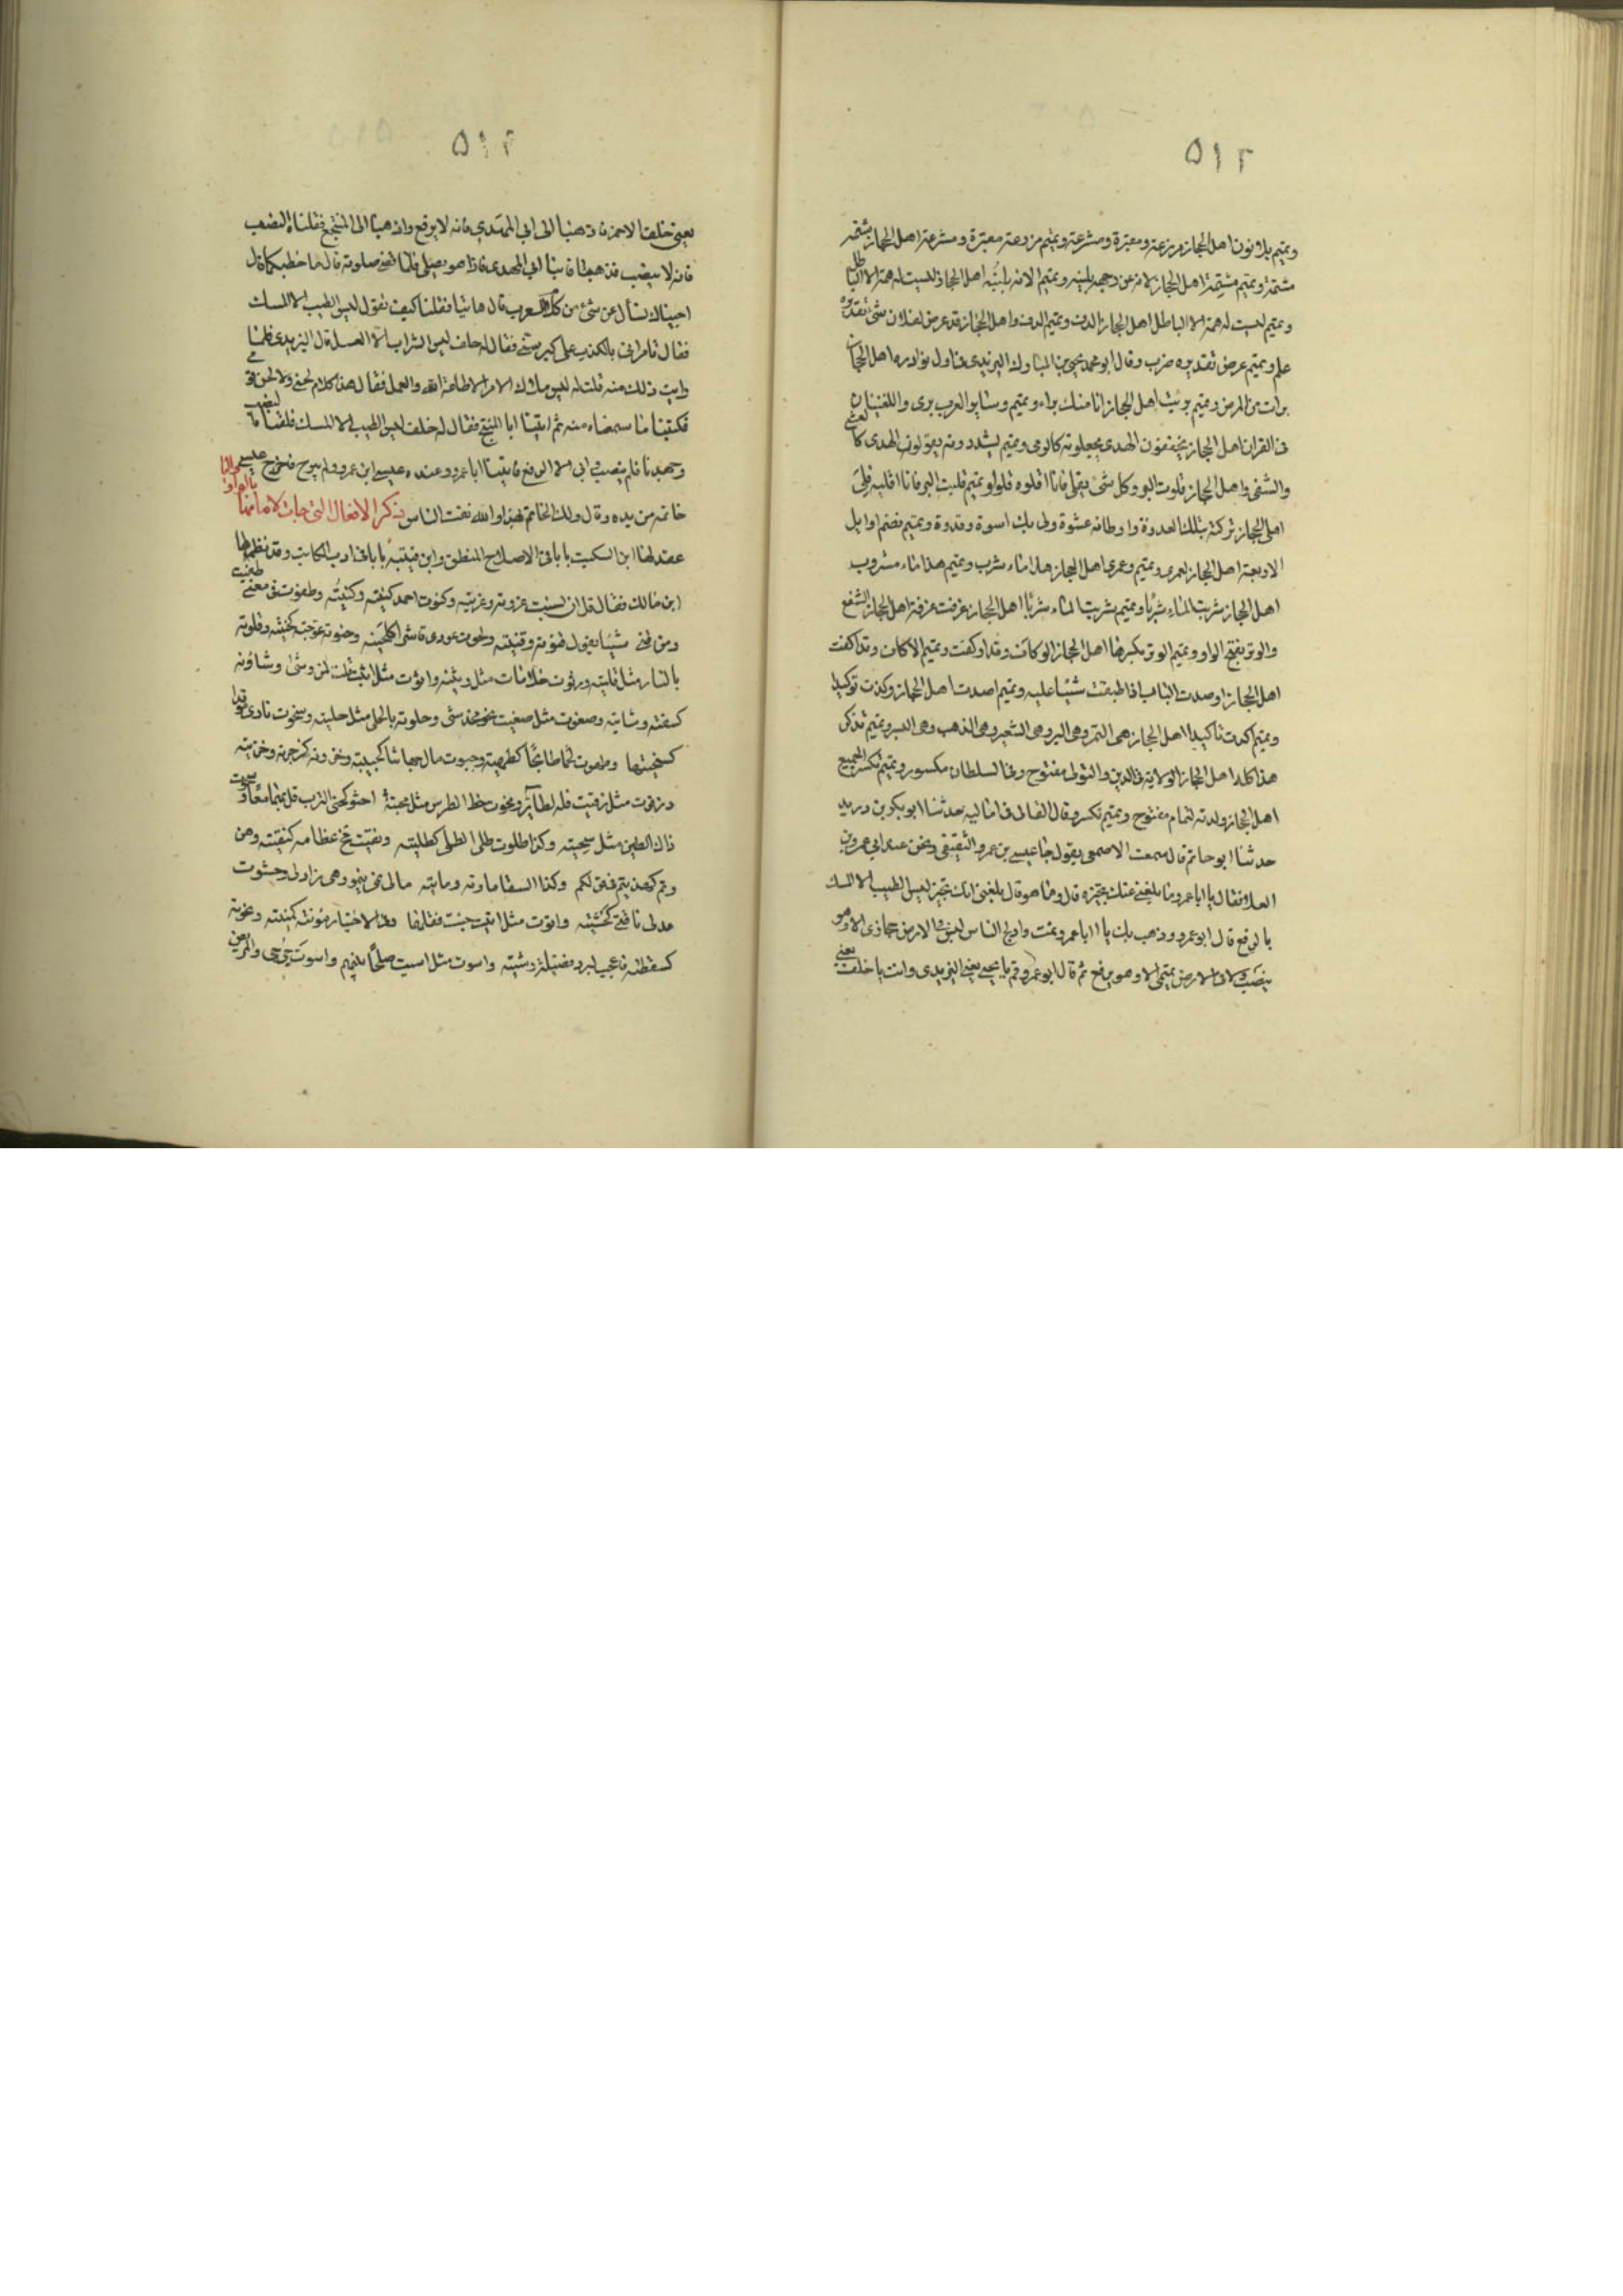 ٥١٢
وتميم يلاثون اهل الحجاز مزرعة ومقبرة ومشرعة وتميم مزرعة مقبرة ومشرعة اهل الحجاز شتمه
مشتمة وتميم مشتمة اهل الحجاز لاته عن وجهه يليته وتميم الاته يليته اهل الحجاز ليست له همة الا الباطل
وتميم ليست له همة الا الباطل اهل الحجاز الدف وتميم الدف واهل الحجاز قد عرض لفلان شئ تقديره
علم وتميم عرض تقديره ضرب وقال ابو محمد يحيى بن المبارك اليزيدى فى اول نوادره اهل الحجاز
برات من المرض وتميم بريت اهل الحجاز انا منك براء وتميم وسائر العرب برى واللغتان
فى القران اهل الحجاز يخففون الهدى يجعلونه كالرمى وتميم يشددونه يقولون الهدى كالعشى
والشقى واهل الحجاز قلوت البر وكل شئ يقلى فانا اقلوه قلوا وتميم قليت البر فانا اقليه قلى
اهل الحجاز تركته بتلك العدوة واوطاته عشوة ولى بك اسوة وقدوة وتميم تضم اوايل
الاربعة اهل الحجاز لعمرى وتميم رعمرى اهل الحجاز هذا ماء شرب وتميم هذا ماء مشروب
اهل الحجاز شربت الماء شربا وتميم شربت الماء شربا اهل الحجاز غرفت غرفة اهل الحجاز الشفع
والوتر بفتح الواو وتميم الوتر بكسرها اهل الحجاز الوكاف وقد اوكفت وتميم الاكاف وقد اكفت
اهل الحجاز اوصدت الباب اذا اطبقت شيئا عليه وتميم اصدت اهل الحجاز وكدت توكيدا
وتميم اكدت تاكيدا اهل الحجاز هى التمر وهى البر وهى الشعير وهى الذهب وهى البسر وتميم تذكر
هذا كله اهل الحجاز الولاية فى الدين والتولى مفتوح وفى السلطان مكسور وتميم تكسر الجميع
اهل الحجاز ولدته لتمام مفتوح وتميم تكسر وقال القالى فى اماليه حدثنا ابو بكر بن دريد
حدثنا ابو حاتم قال سمعت الاصمعى يقول جا عيسى بن عمر والثقفى ونحن عند ابى عمرو بن
العلا فقال يا ابا عمرو ما بلغنى عنك تجيزه قال وما هو قال بلغنى انك تجيز ليس الطيب الا المسك
بالرفع قال ابو عمرو وذهب بك يا ابا عمرو نمت وادلج الناس ليس فى الارض حجازى الا وهو
ينصب ولا فى الارض تميمى الا وهو يرفع ثم قال ابو عمرو قم يا يحيى يعنى اليزيدى وانت يا خلف يعنى
٥١٣
يعنى خلف الاحمر فاذهبا الى ابى المهدى فانه لا يرفع واذهبا الى المنتجع فلقناه النصب
فانه لا ينصب فذهبا فاتيا ابى المهدى فاذا هو يصلى فلما قضى صلوته قال ما خطبكما قال
احببناك نسأل عن شئ من كلام العرب قال هاتيا فقلنا كيف تقول ليس الطيب الا المسك
فقال تامرانى بالكذب على كبر سنى فقال له خلف ليس الشراب الا العسل قال اليزيدى فلما
رايت ذلك منه قلت له ليس ملاك الامر الا طاعة الله والعمل فقال هذا كلام لحنى ولا لحن قومى
فكتبنا ما سمعناه منه ثم اتينا ابا المنتجع فقال له خلف ليس الطيب الا المسك فلقناه النصب
وجهدنا فلم ينصب وابى الا الرفع فاتينا ابا عمرو وعنده عيسى ابن عمرو لم يبرح فاخرج عيسى
خاتمه من يده وقال ولك الخاتم بهذا والله فقت الناس ذكر الافعال التى جات لاماتها بالواو والياء
عقد لها ابن السكيت بابا فى الاصلاح المنطق وابن قتيبة بابا فى ادب الكاتب وقد نظمها
ابن مالك فقال قل ان نسبت عزوته وعزيته وكنوت احمد كنية وكنيته وطغوت فى معنى طغيت
ومن قنى شيئا يقول قنوته وقنيته ولحوت عودى قاشرا كلحيته وحنوته عوجته كحنيته وقلوته
بالنار مثل قليته ورثوت خلا مات مثل رثيته واثوت مثل اثيت قلت لمن وشى وشاوته
كسبقته وشايته وصغوت مثل صغيت نحو محدثى وحلوته بالحلى مثل حليته وسخوت نارى موقدا
كسخيتها وطهوت لحما طابخا كطهيته وجبوت مال جهاتنا كجبيته وخزوته كزجرته وخزيته
وزقوت مثل زقيت قله لطائر ومحوت خط الطرس مثل محيته احثو كحثى الترب قل بهما معا وسحوت
ذاك الطين مثل سحيته وكذا طلوت طلى الطلى كطليته ونقوت مخ عظامه كنقيته
مالى نمى ينمو وهى وحشوت
عدلى كحشيته واتوت مثل اتيت جئت فقلها